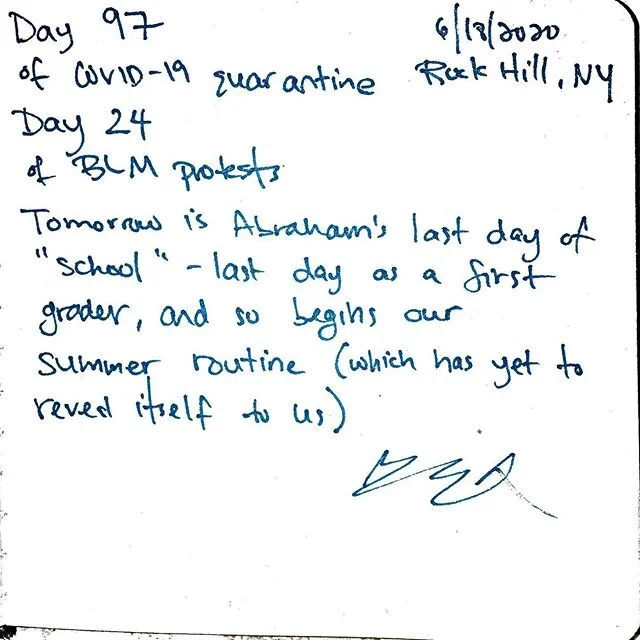 Day 97
of COVID-19 quarantine
6/18/2020
Rock Hill, NY
Day 24
of BLM protests
Tomorrow is Abraham's last day of
"school" - last day as a first
grader, and so begins our
summer routine (which has yet to
reveal itself to us)